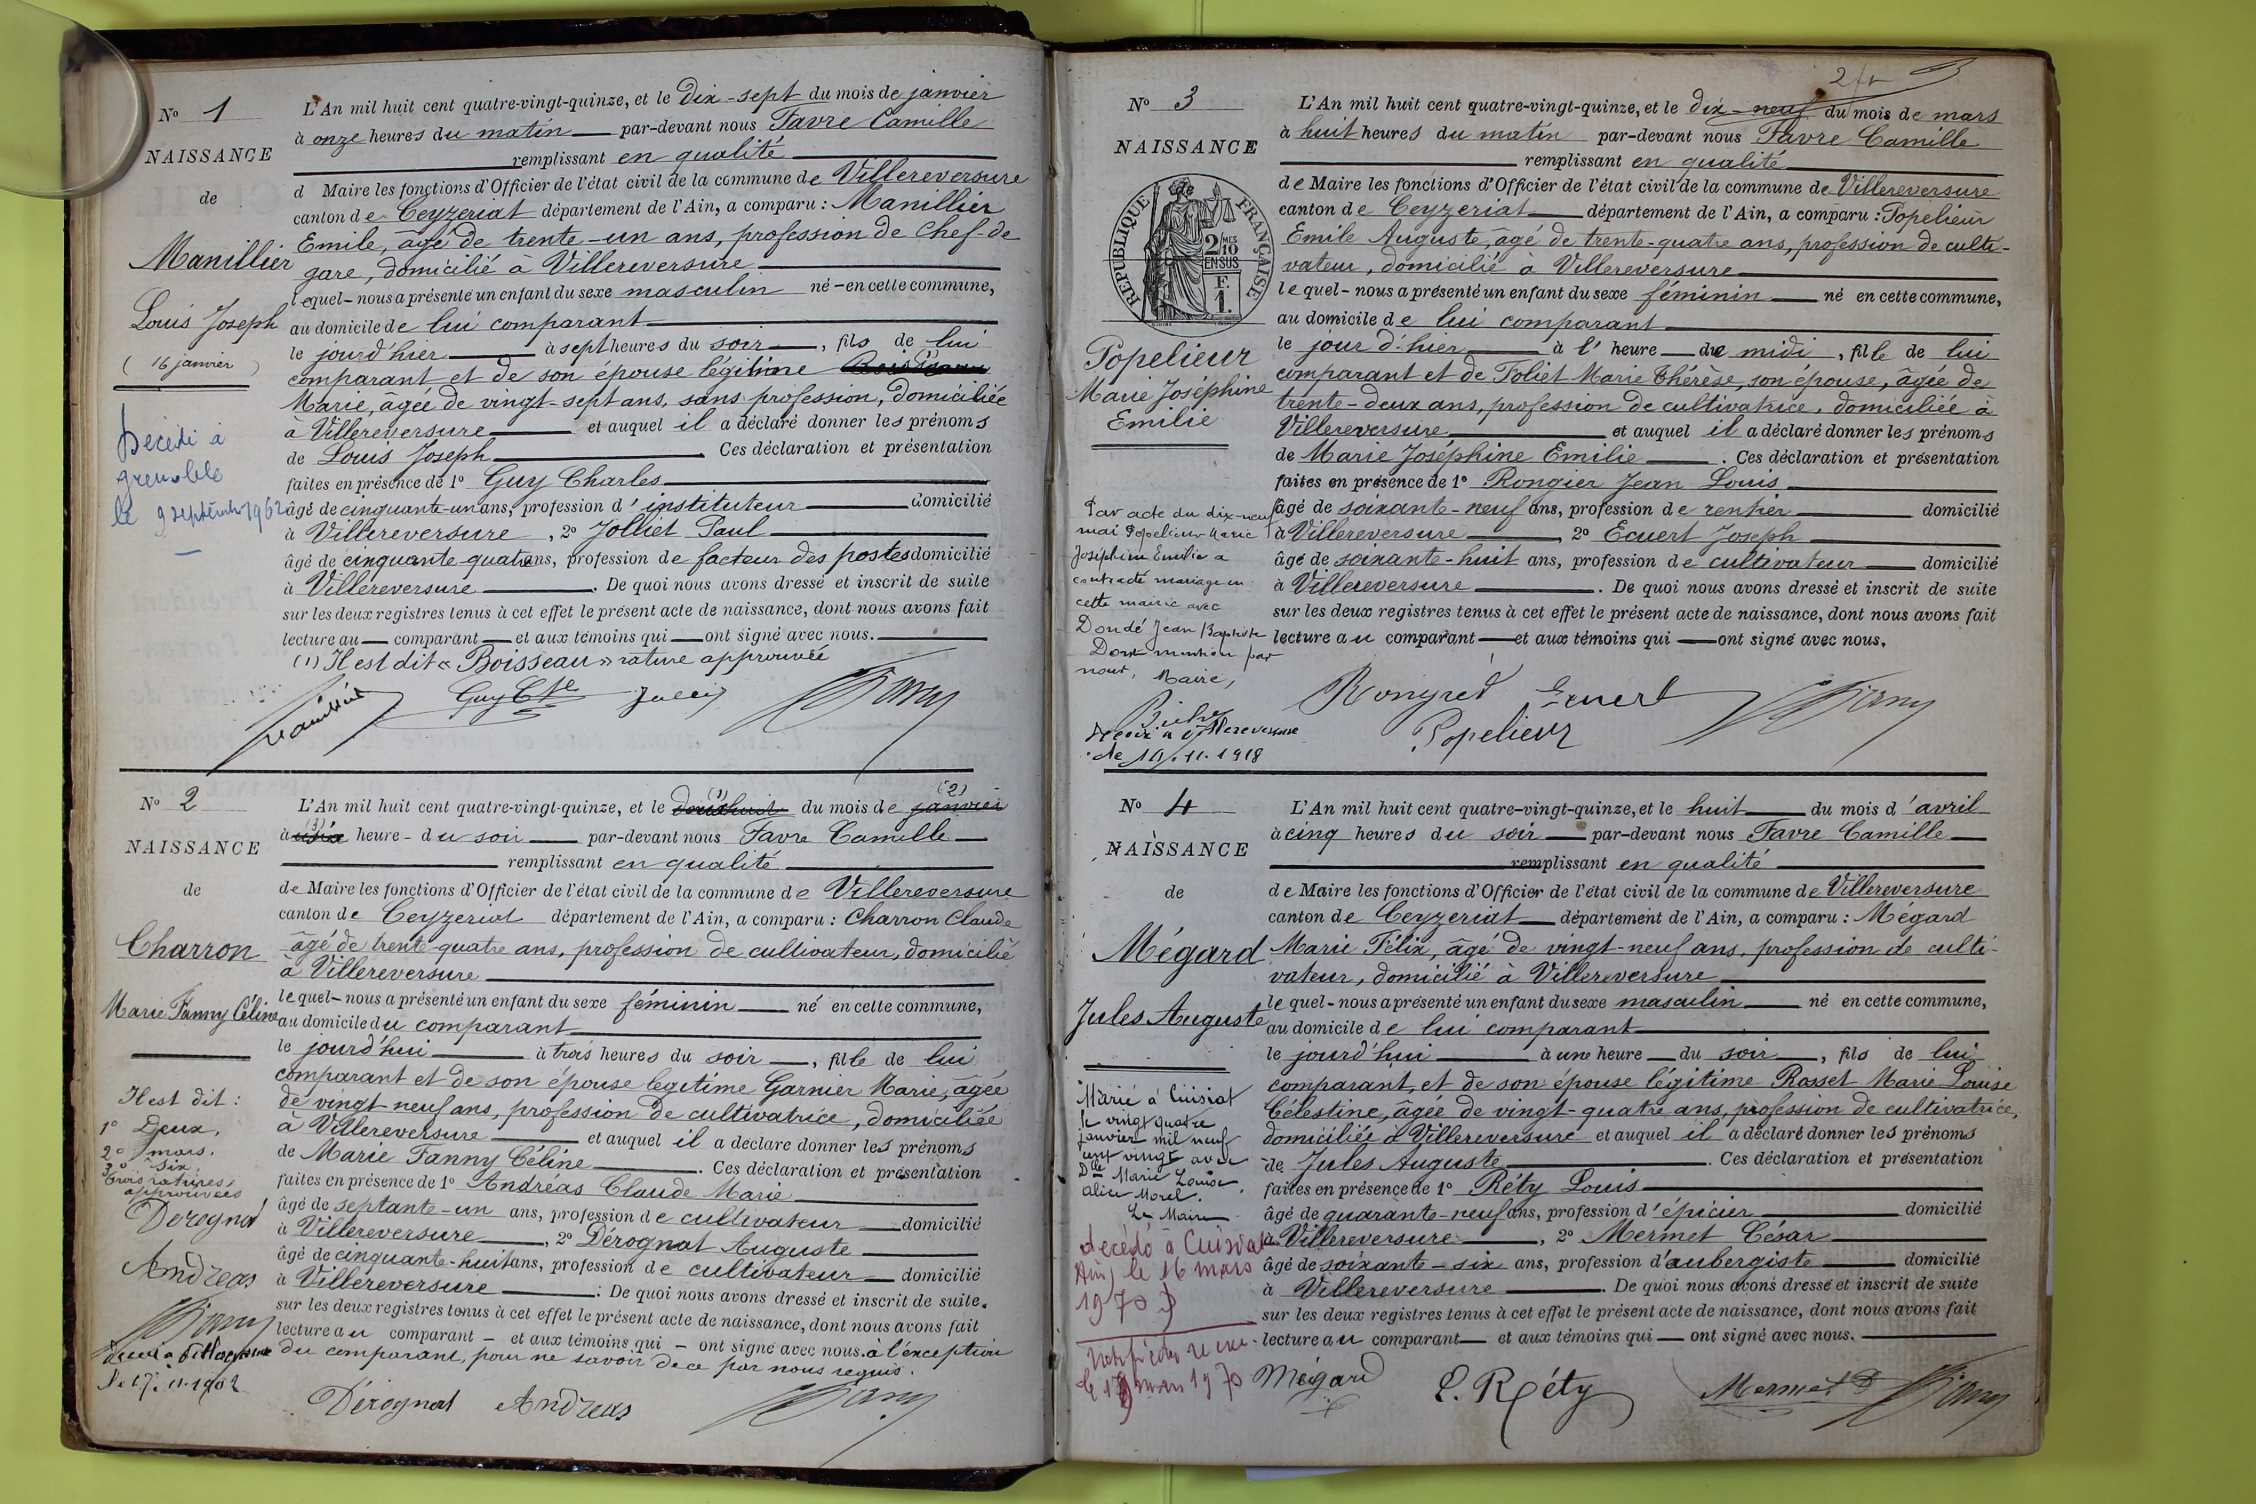 N° 1
NAISSANCE
de
Manillier
Louis Joseph
( 16 janvier )
Décédé à
Grenoble
le 9 septembre 1962
L'An mil huit cent quatre-vingt-quinze, et le dix-sept du mois de janvier
à onze heures du matin par-devant nous Favre Camille
remplissant en qualité
d Maire les fonctions d'Officier de l'état civil de la commune de Villereversure
canton de Ceyzeriat département de l'Ain, a comparu : Manillier
Emile, âgé de trente-un ans, profession de Chef-de
gare, domicilié à Villereversure
lequel-nous a présenté un enfant du sexe masculin né-en cette commune,
au domicile de lui comparant
le jourd'hier à sept heures du soir, fils de lui
comparant et de son épouse légitime (1)
Marie, âgée de vingt-sept ans, sans profession, domiciliée
à Villereversure et auquel il a déclaré donner les prénoms
de Louis Joseph Ces déclaration et présentation
faites en présence de 1° Guy Charles
âgé de cinquante-un ans, profession d'instituteur domicilié
à Villereversure, 2° Jolliet Paul
âgé de cinquante-quatre ans, profession de facteur des postes domicilié
à Villereversure. De quoi nous avons dressé et inscrit de suite
sur les deux registres tenus à cet effet le présent acte de naissance, dont nous avons fait
lecture au comparant et aux témoins qui ont signé avec nous.
(1) Il est dit « Boisseau » rature approuvée
Guy Cles
N° 2
NAISSANCE
de
Charron
Marie Fanny Céline
Il est dit :
1° Deux,
2° mars.
3° six.
trois ratures
approuvées
Derognat
Andreas
L'An mil huit cent quatre-vingt-quinze, et le (1) dixhuit du mois de (2) janvier
à (3) heure - du soir par-devant nous Favre Camille
remplissant en qualité
de Maire les fonctions d'Officier de l'état civil de la commune de Villereversure
canton de Ceyzeriat département de l'Ain, a comparu : Charron Claude
âgé de trente-quatre ans, profession de cultivateur, domicilié
à Villereversure
lequel-nous a présenté un enfant du sexe féminin né en cette commune,
au domicile du comparant
le jourd'hui à trois heures du soir, fille de lui
comparant et de son épouse légitime Garnier Marie, âgée
de vingt neuf ans, profession de cultivatrice, domiciliée
à Villereversure et auquel il a déclaré donner les prénoms
de Marie Fanny Céline. Ces déclaration et présentation
faites en présence de 1° Andréas Claude Marie
âgé de septante-un ans, profession de cultivateur domicilié
à Villereversure, 2° Dérognat Auguste
âgé de cinquante-huit ans, profession de cultivateur domicilié
à Villereversure : De quoi nous avons dressé et inscrit de suite.
sur les deux registres tenus à cet effet le présent acte de naissance, dont nous avons fait
lecture au comparant - et aux témoins qui - ont signé avec nous. à l'exception
du comparant, pour ne savoir de ce par nous requis.
Dérognat Andreas
N° 3
NAISSANCE
de
RÉPUBLIQUE FRANÇAISE
2/10 MES
EN SUS
F.
1.
Popelieur
Marie Joséphine
Emilie
Par acte du dix-neuf
mai Popelieur Marie
Joséphine Emilie a
contracté mariage en
cette mairie avec
Dondé Jean Baptiste
Dont mention par
nous, Maire,
Décédée à Villereversure
L'An mil huit cent quatre-vingt-quinze, et le dix-neuf du mois de mars
à huit heures du matin par-devant nous Favre Camille
remplissant en qualité
de Maire les fonctions d'Officier de l'état civil de la commune de Villereversure
canton de Ceyzeriat département de l'Ain, a comparu : Popelieur
Emile Auguste, âgé de trente-quatre ans, profession de culti-
vateur, domicilié à Villereversure
lequel-nous a présenté un enfant du sexe féminin né en cette commune,
au domicile de lui comparant
le jour d'hier à l'heure de midi, fille de lui
comparant et de Foliet Marie Thérèse, son épouse, âgée de
trente-deux ans, profession de cultivatrice, domiciliée à
Villereversure et auquel il a déclaré donner les prénoms
de Marie Joséphine Emilie. Ces déclaration et présentation
faites en présence de 1° Rongier Jean Louis
âgé de soixante-neuf ans, profession de rentier domicilié
à Villereversure, 2° Ecuert Joseph
âgé de soixante-huit ans, profession de cultivateur domicilié
à Villereversure. De quoi nous avons dressé et inscrit de suite
sur les deux registres tenus à cet effet le présent acte de naissance, dont nous avons fait
lecture au comparant et aux témoins qui ont signé avec nous.
Ecuert
Popelieur
N° 4
NAISSANCE
de
Mégard
Jules Auguste
Marié à Cuisiat
le vingt quatre
janvier mil neuf
cent vingt avec
Dlle Marie Louise
Alice Morel.
Le Maire
décédé à Cuisiat
(Ain) le 16 mars
1970
L'An mil huit cent quatre-vingt-quinze, et le huit du mois d'avril
à cinq heures du soir par-devant nous Favre Camille
remplissant en qualité
de Maire les fonctions d'Officier de l'état civil de la commune de Villereversure
canton de Ceyzeriat département de l'Ain, a comparu : Mégard
Marie Félix, âgé de vingt-neuf ans, profession de culti-
vateur, domicilié à Villereversure
lequel-nous a présenté un enfant du sexe masculin né en cette commune,
au domicile de lui comparant
le jourd'hui à une heure du soir, fils de lui
comparant, et de son épouse légitime Rosset Marie Louise
Célestine, âgée de vingt-quatre ans, profession de cultivatrice,
domiciliée à Villereversure et auquel il a déclaré donner les prénoms
de Jules Auguste. Ces déclaration et présentation
faites en présence de 1° Réty Louis
âgé de quarante-neuf ans, profession d'épicier domicilié
à Villereversure, 2° Mermet César
âgé de soixante-six ans, profession d'aubergiste domicilié
à Villereversure. De quoi nous avons dressé et inscrit de suite
sur les deux registres tenus à cet effet le présent acte de naissance, dont nous avons fait
lecture au comparant et aux témoins qui ont signé avec nous.
Mégard L. Réty Mermet